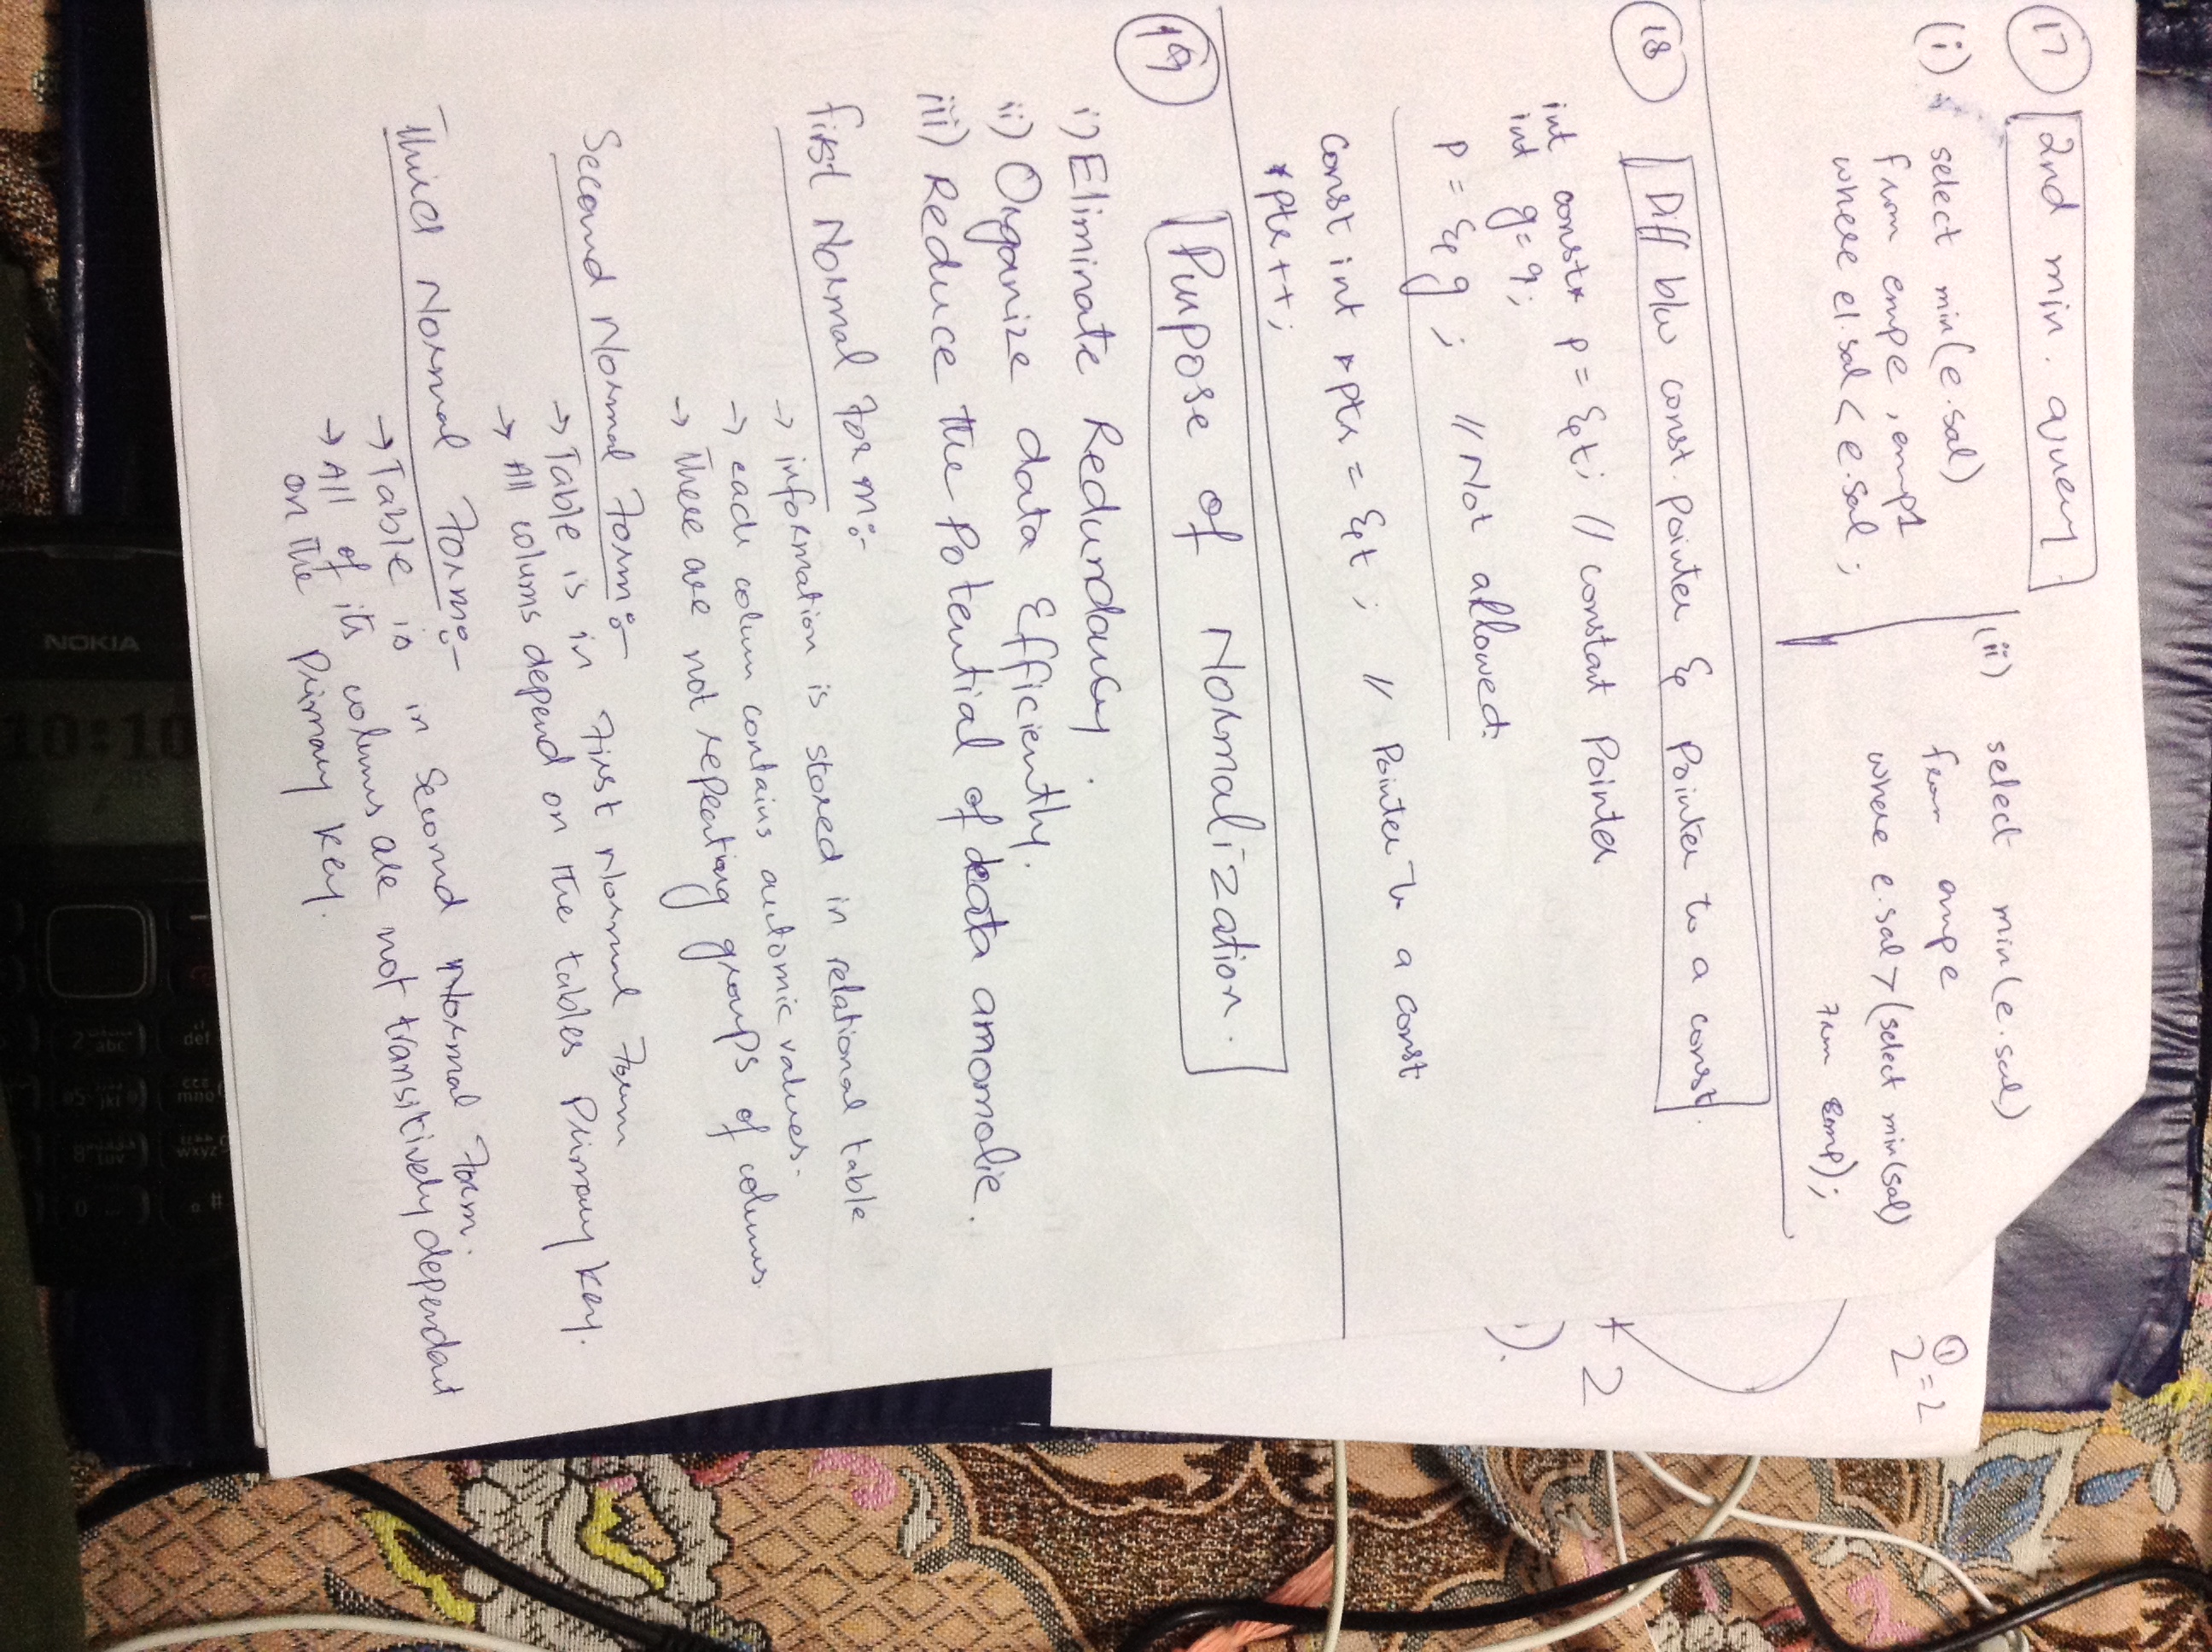 17 2nd min. query.
(i) select min(e.sal)
from emp e, emp1
where e1.sal < e.sal;
(ii) select min(e.sal)
from emp e
where e.sal > (select min(sal)
from emp);
18 Diff b/w const. pointer & Pointer to a const.
int const* p = &t; // constant Pointer
int g = 9;
p = &g; // Not allowed.
const int *ptr = &t; // Pointer to a const
*ptr++;
19 Purpose of Normalization.
i) Eliminate Redundancy.
ii) Organize data Efficiently.
iii) Reduce the Potential of data amomalie.
first Normal Form:-
→ information is stored in relational table
→ each colum contains automic values.
→ There are not repeating groups of colums
Second Normal Form:-
→ Table is in First Normal Form
→ All colums depend on the tables Primary key.
Third Normal Form:-
→ Table is in Second Normal Form.
→ All of its colums are not transitively dependant
on the Primary key.
1
2 = 2
2
).
NOKIA